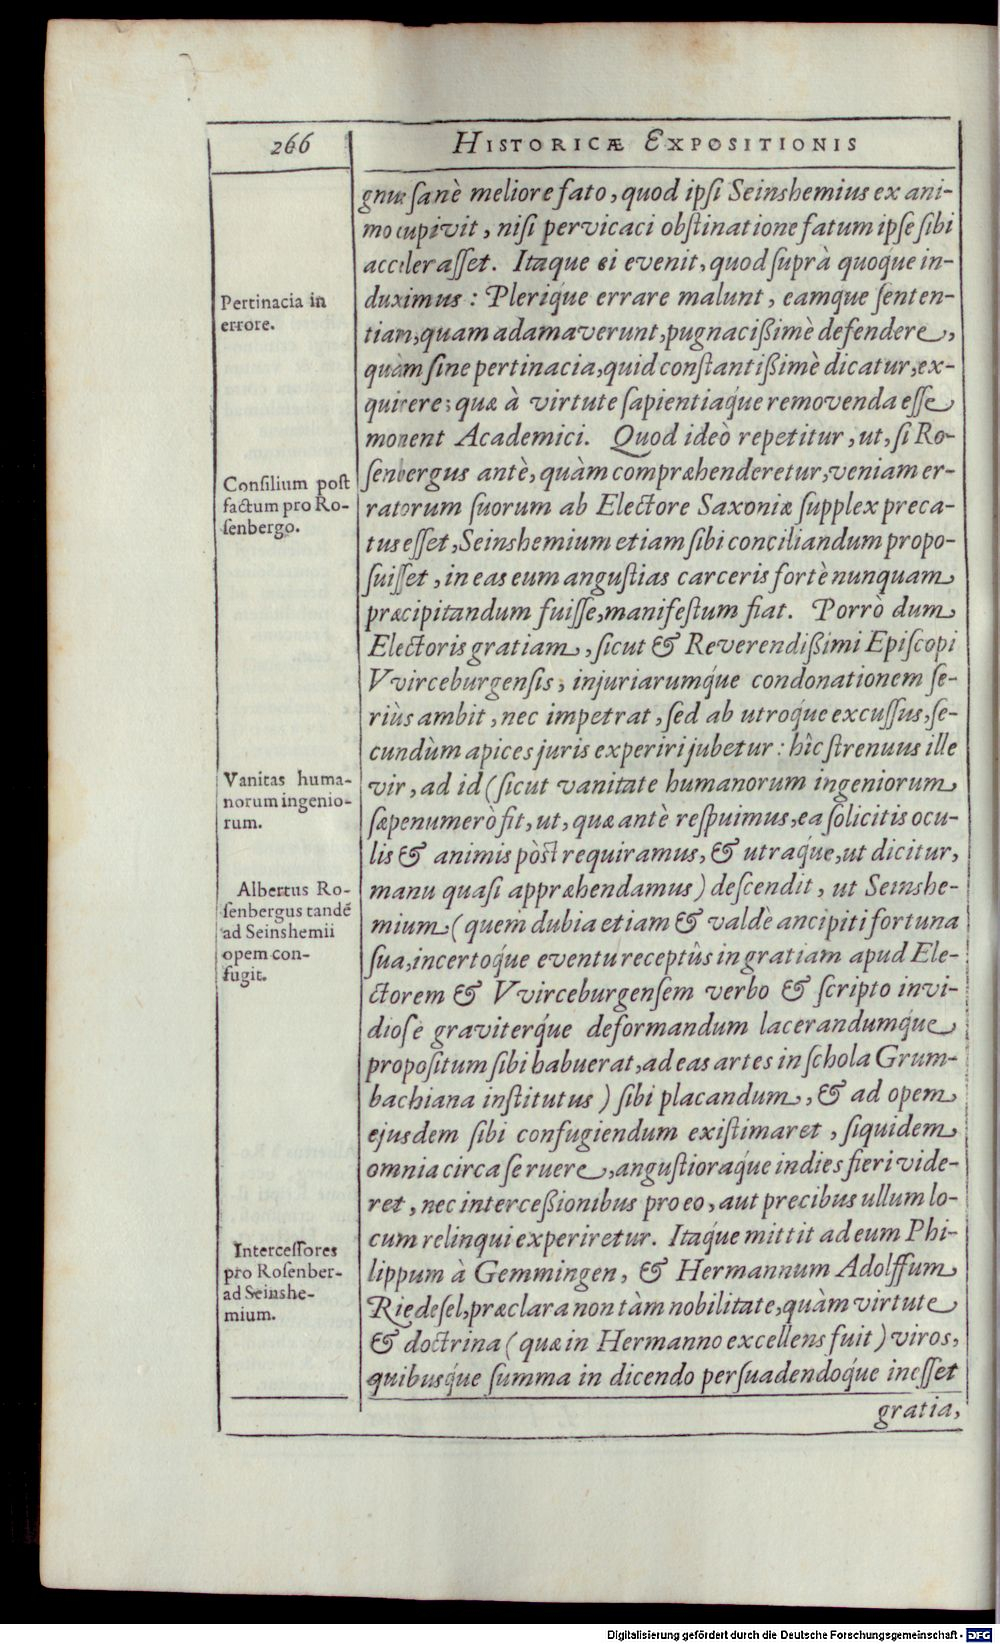 266
HISTORICÆ EXPOSITIONIS
gnus sanè meliore fato, quod ipsi Seinshemius ex ani-
mo cupivit, nisi pervicaci obstinatione fatum ipse sibi
accelerasset. Itaque ei evenit, quod suprà quoque in-
duximus: Plerique errare malunt, eamque senten-
tiam, quam adamaverunt, pugnacißimè defendere,
quàm sine pertinacia, quid constantißimè dicatur, ex-
quirere; quæ à virtute sapientiaque removenda esse
monent Academici. Quod ideò repetitur, ut, si Ro-
senbergus antè, quàm compræhenderetur, veniam er-
ratorum suorum ab Electore Saxoniæ supplex preca-
tus esset, Seinshemium etiam sibi conciliandum propo-
suisset, in eas eum angustias carceris fortè nunquam
præcipitandum fuisse, manifestum fiat. Porrò dum
Electoris gratiam, sicut & Reverendißimi Episcopi
Vvirceburgensis, injuriarumque condonationem se-
riùs ambit, nec impetrat, sed ab utroque excussus, se-
cundùm apices juris experiri jubetur: hîc strenuus ille
vir, ad id (sicut vanitate humanorum ingeniorum
sæpenumerò fit, ut, quæ antè respuimus, ea solicitis ocu-
lis & animis pòst requiramus, & utraque, ut dicitur,
manu quasi appræhendamus) descendit, ut Seinshe-
mium (quem dubia etiam & valdè ancipiti fortuna
sua, incertoque eventu receptûs in gratiam apud Ele-
ctorem & Vvirceburgensem verbo & scripto invi-
diosè graviterque deformandum lacerandumque
propositum sibi habuerat, ad eas artes in schola Grum-
bachiana institutus) sibi placandum, & ad opem
ejusdem sibi confugiendum existimaret, siquidem
omnia circa se ruere, angustioraque indies fieri vide-
ret, nec interceßionibus pro eo, aut precibus ullum lo-
cum relinqui experiretur. Itaque mittit ad eum Phi-
lippum à Gemmingen, & Hermannum Adolffum
Riedesel, præclara non tàm nobilitate, quàm virtute
& doctrina (quæ in Hermanno excellens fuit) viros,
quibusque summa in dicendo persuadendoque inesset
gratia,
Pertinacia in
errore.
Consilium post
factum pro Ro-
senbergo.
Vanitas huma-
norum ingenio-
rum.
Albertus Ro-
senbergus tandē
ad Seinshemii
opem con-
fugit.
Intercessores
pro Rosenber-
ad Seinshe-
mium.
Digitalisierung gefördert durch die Deutsche Forschungsgemeinschaft - DFG